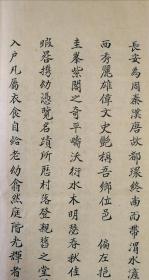 長安為周秦漢唐故都環終南而帶渭水
西秀麗雄偉文史艷稱吾鄉位邑 偏左挹
圭峯紫閣之奇平疇沃衍水木明瑟春秋佳
暇嘗携幼憑覽名蹟所歷村落登親舊之堂
入户凡屬衣食自給老幼然庭階光輝者